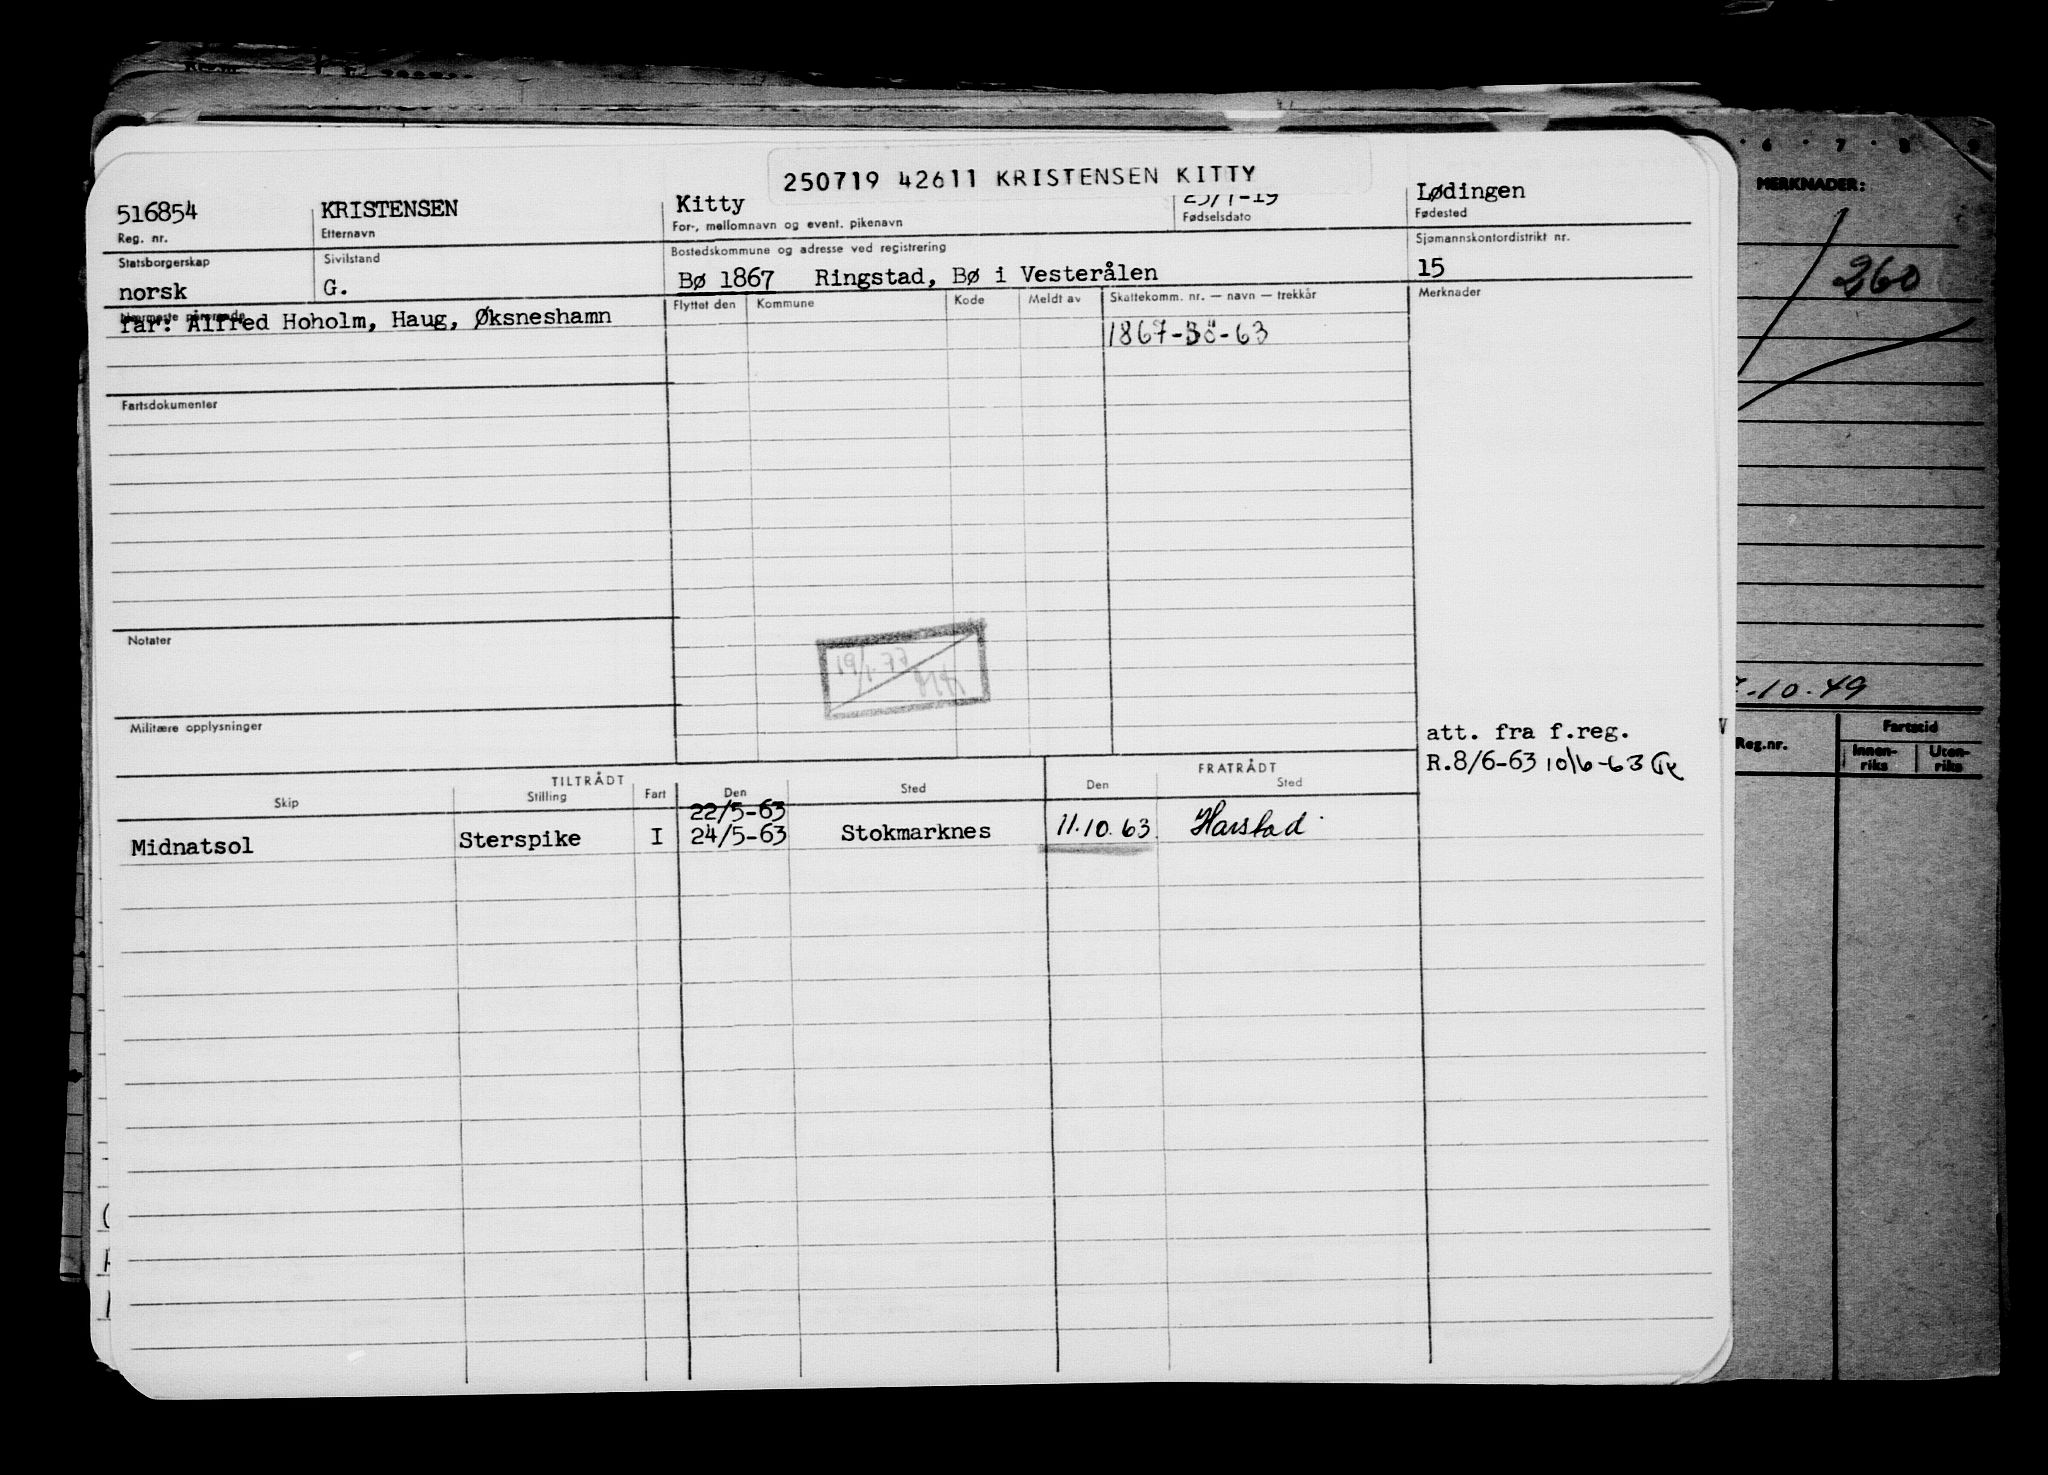 250719 42611 KRISTENSEN KITTY
516854 KRISTENSEN Kitty 25/7-19 Lødingen
Reg. nr. Etternavn For-, mellomnavn og event. pikenavn Fødselsdato Fødested
Statsborgerskap Sivilstand Bostedskommune og adresse ved registrering Sjømannskontordistrikt nr.
norsk G. Bø 1867 Ringstad, Bø i Vesterålen 15
Nærmeste pårørende Flyttet den Kommune Kode Meldt av Skattekomm. nr. — navn — trekkår Merknader
far: Alfred Hoholm, Haug, Øksneshamn
1867-Bö-63
Fartsdokumenter
Notater
19/1.77
Militære opplysninger
att. fra f.reg.
R.8/6-63 10/6-63
TILTRÅDT FRATRÅDT
Skip Stilling Fart Den Sted Den Sted
22/5-63
Midnatsol Sterspike I 24/5-63 Stokmarknes 11.10.63 Harstad
6 7 8 9
MERKNADER:
360
-10.49
Reg.nr. Fartstid
Innen-riks Uten-riks